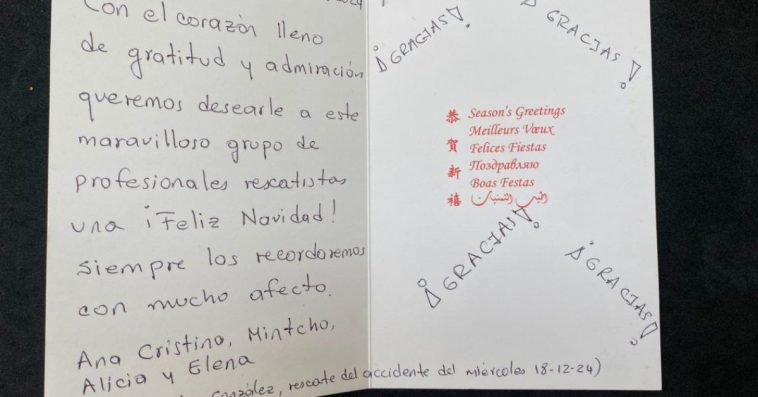 2024
Con el corazón lleno
de gratitud y admiración
queremos desearle a este
maravilloso grupo de
profesionales rescatistas
una ¡Feliz Navidad!
Siempre los recordaremos
con mucho afecto.
Ana Cristina, Mintcho,
Alicia y Elena
González, rescate del accidente del miércoles 18-12-24)
¡GRACIAS!
¡GRACIAS!
恭賀新禧
Season's Greetings
Meilleurs Vœux
Felices Fiestas
Поздравляю
Boas Festas
¡GRACIAS!
¡GRACIAS!